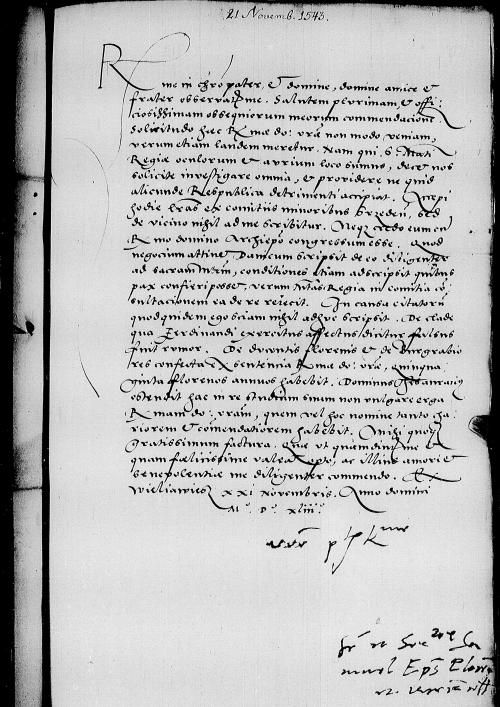 21 Novemb. 1543.
Rme in chro pater, et domine, domine amice et
frater observandme. Salutem plurimam, et offi:
ciosissimam obsequiorum meorum commendacionem.
Solicitudo haec Rmae do: vrae non modo veniam,
verum etiam laudem meretur. Nam qui S. Mati
Regiae oculorum et aurium loco sumus, decet nos
solicite investigare omnia, et providere ne quid
alicunde Respublica detrimenti accipiat. Accepi
hodie lras ex comitiis minoribus Srzeden, sed
de vicino nihil ad me scribitur. Neque credo eum cum
Rmo domino Archiepo congressum esse. Quod
negocium attinet Damcum scripsit de eo diligenter
ad sacram Mtem, conditiones etiam adscripsit quibus
pax confieri posset, verum Mtas Regia in comitia con
sultacionem ea de re reiecit. In causa citatorum
quod quidem ego sciam nihil adhuc scripsit. De clade
qua Ferdinandi exercitus affectus dicitur falsus
fuit rumor. De ducentis florenis et de Burgrabio
res confecta ex sentencia Rmae do: vrae, quinqua
ginta florenos annuos habebit. Dominus Thesaurarius
ostendit hac in re studium suum non vulgare erga
Rmam do: vram, quem vel hoc nomine tanto ca
riorem et comendatiorem habebit. Mihi quoque
gratissimum factura. Quae ut quam diutissime et
quam foelicissime valeat opto, ac illius amori et
benevolentiae me diligenter commendo. Ex
Wieliawiesz XXI Novembris. Anno domini
M.° D.° xliii.°
Eps